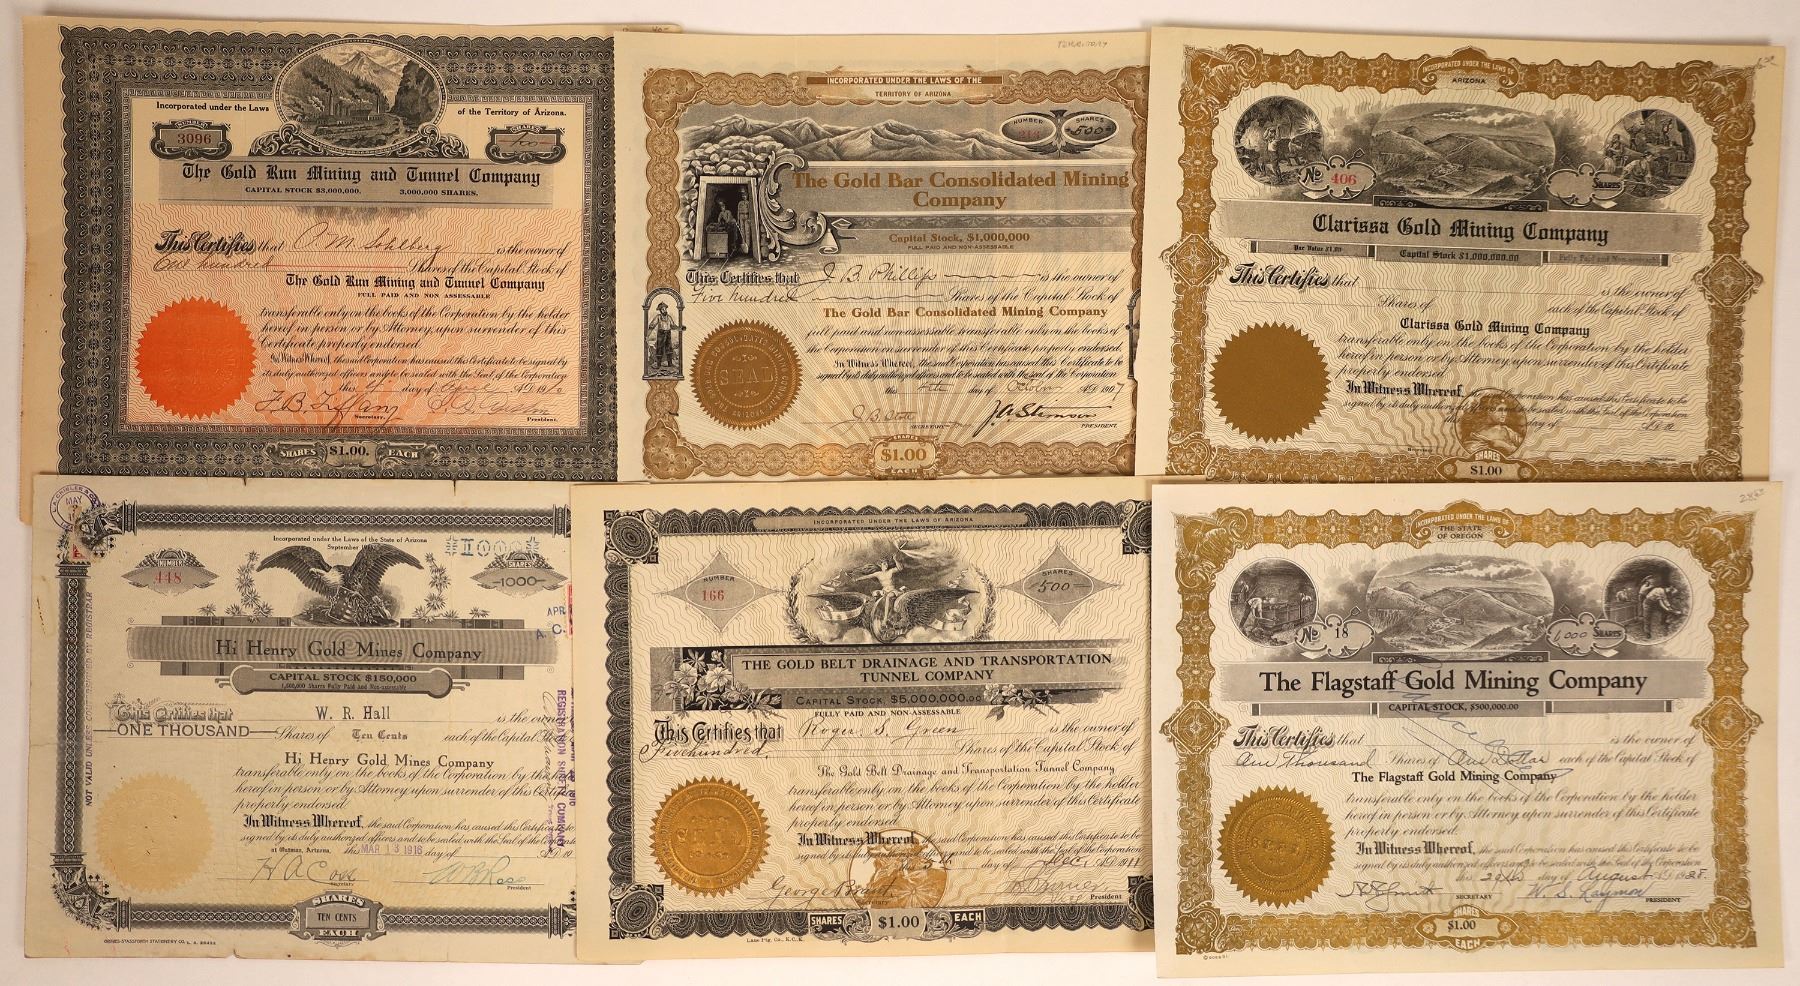 Incorporated under the Laws
of the Territory of Arizona.
NUMBER
3096
SHARES
The Gold Run Mining and Tunnel Company
CAPITAL STOCK $3,000,000. 3,000,000 SHARES.
This Certifies that O. M. Sohlberg is the owner of
One hundred Shares of the Capital Stock of
The Gold Run Mining and Tunnel Company
FULL PAID AND NON ASSESSABLE
transferable only on the books of the Corporation by the holder
hereof in person or by Attorney, upon surrender of this
Certificate properly endorsed.
In Witness Whereof, the said Corporation has caused this Certificate to be signed by
its duly authorized officers and to be sealed with the Seal of the Corporation
this day of A.D. 191
F. B. Tiffany
Secretary.
President.
SHARES $1.00. EACH
TERRITORY
INCORPORATED UNDER THE LAWS OF THE
TERRITORY OF ARIZONA
NUMBER
SHARES
500
The Gold Bar Consolidated Mining
Company
Capital Stock, $1,000,000
FULL PAID AND NON-ASSESSABLE
This Certifies that J. B. Phillips is the owner of
Five hundred Shares of the Capital Stock of
The Gold Bar Consolidated Mining Company
full paid and nonassessable transferable only on the books of
the Corporation on surrender of this Certificate properly endorsed.
In Witness Whereof, the said Corporation has caused this Certificate to be
signed by its duly authorized officers and to be sealed with the Seal of the Corporation
this day of A.D. 1907
SEAL
SECRETARY
PRESIDENT.
SHARES
$1.00
EACH
INCORPORATED UNDER THE LAWS OF
ARIZONA
No 406
SHARES
Clarissa Gold Mining Company
Par Value $1.00
Capital Stock $1,000,000.00
Fully Paid and Non-assessable
This Certifies that is the owner of
Shares of each of the Capital Stock of
Clarissa Gold Mining Company
transferable only on the books of the Corporation by the holder
hereof in person or by Attorney upon surrender of this Certificate
properly endorsed.
In Witness Whereof, the said Corporation has caused this Certificate to be
signed by its duly authorized officers and to be sealed with the Seal of the Corporation
this day of A.D. 19
SHARES
$1.00
MAY
NOT VALID UNLESS COUNTERSIGNED BY REGISTRAR
Incorporated under the Laws of the State of Arizona
September
NUMBER
448
1000
SHARES
1000
APR
A. C.
Hi Henry Gold Mines Company
CAPITAL STOCK $150,000
1,500,000 Shares Fully Paid and Non-assessable
This Certifies that W. R. Hall is the owner
ONE THOUSAND Shares of Ten Cents each of the Capital Stock
Hi Henry Gold Mines Company
transferable only on the books of the Corporation by the
hereof in person or by Attorney, upon surrender of this Certificate
properly endorsed.
In Witness Whereof, the said Corporation has caused this Certificate to
signed by its duly authorized officers and to be sealed with the Seal of the Corporation
at Oatman, Arizona, this MAR 13 1916 day of A.D. 19
Secretary
President
SHARES
TEN CENTS
EACH
REGISTRATION
COMPANY
INCORPORATED UNDER THE LAWS OF ARIZONA
NUMBER
166
SHARES
500
THE GOLD BELT DRAINAGE AND TRANSPORTATION
TUNNEL COMPANY
CAPITAL STOCK $5,000,000.00
FULLY PAID AND NON-ASSESSABLE
This Certifies that Roger S. Green is the owner of
Five hundred Shares of the Capital Stock of
The Gold Belt Drainage and Transportation Tunnel Company
transferable only on the books of the Corporation by the holder
hereof in person or by Attorney, upon surrender of this Certificate
properly endorsed.
In Witness Whereof, the said Corporation has caused this Certificate to be
signed by its duly authorized officers and to be sealed with the Seal of the Corporation
this 5th day of Dec. A.D. 1911
Secretary
President
SHARES $1.00 EACH
INCORPORATED UNDER THE LAWS OF
THE STATE
OF OREGON
No 18
1,000 SHARES
The Flagstaff Gold Mining Company
CAPITAL STOCK, $500,000.00
This Certifies that is the owner of
One Thousand Shares of One Dollar each of the Capital Stock of
The Flagstaff Gold Mining Company
transferable only on the books of the Corporation by the holder
hereof in person or by Attorney upon surrender of this Certificate
properly endorsed.
In Witness Whereof, the said Corporation has caused this Certificate to be
signed by its duly authorized officers and to be sealed with the Seal of the Corporation
this day of August A.D. 1928.
SECRETARY
PRESIDENT
SHARES
$1.00
EACH